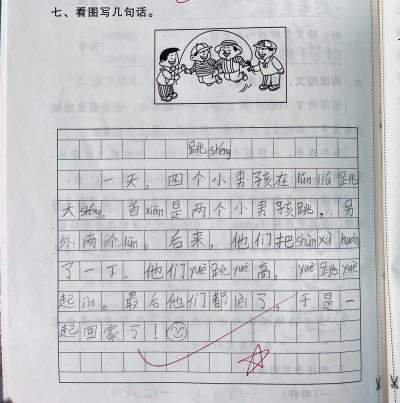 七、看图写几句话。
跳shéng
一天,四个小男孩在lún liú跳
大shéng。首xiān是两个小男孩跳,另
外两个lūn。后来,他们把shùn xù huàn
了一下。他们yuè跳yuè高,yuè跳yuè
起jìn。最后他们都lèi了,于是一
起回家了!